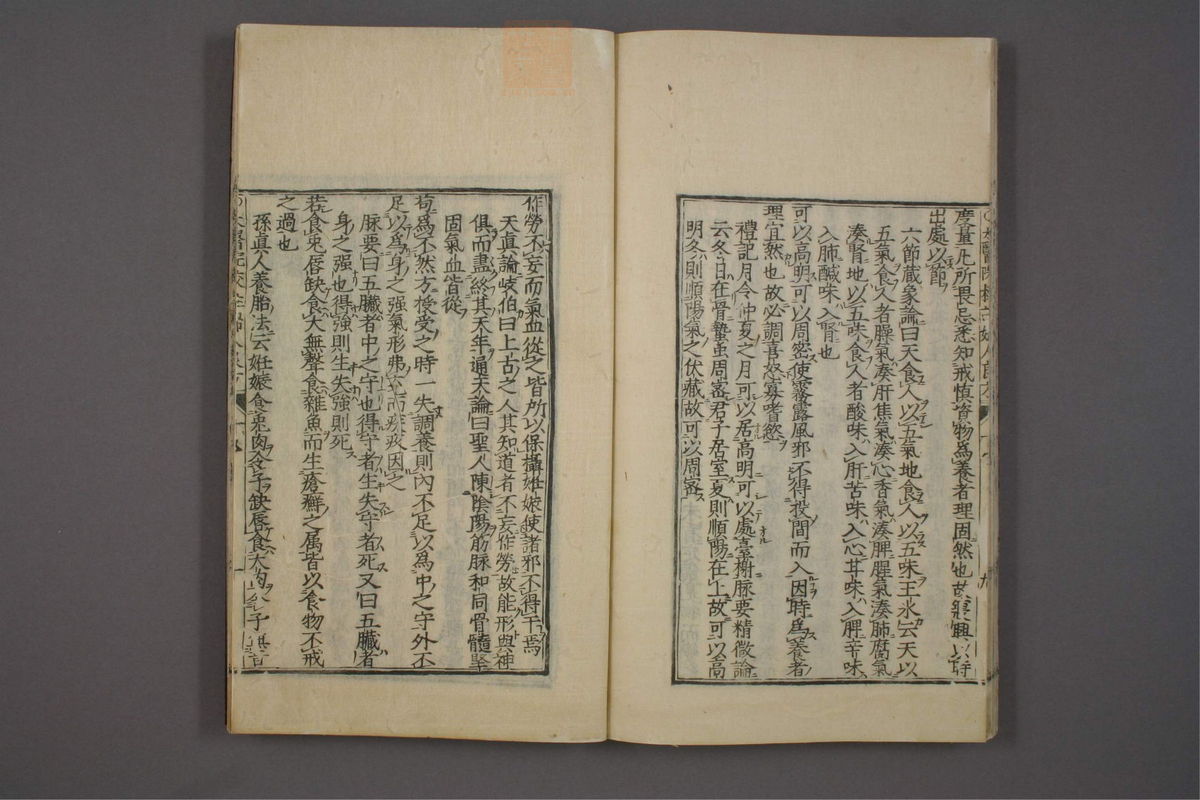 度量凡所畏忌悉知戒慎資物爲養者理固然也故寢興以時
出處以節
六節蔵象論曰天食人以五氣地食人以五味王氷云天以
五氣食人者臊氣湊肝焦氣湊心香氣湊脾腥氣湊肺腐氣
湊腎地以五味食人者酸味入肝苦味入心甘味入脾辛味
入肺醎味入腎也
可以高明可以周密使霧露風邪不得投間而入因時爲養者
理宜然也故必調喜怒寡嗜慾
禮記月令仲夏之月可以居高明可以處臺榭脉要精微論
云冬日在骨蟄虫周密君子居室夏則順陽在上故可以高
明冬則順陽氣之伏藏故可以周密
作勞不妄而氣血從之皆所以保攝妊娠使諸邪不得干焉
天眞論岐伯曰上古之人其知道者不妄作勞故能形與神
俱而盡終其天年通天論曰聖人陳陰陽筋脉和同骨髓堅
固氣血皆從
苟爲不然方授受之時一失調養則内不足以爲中之守外不
足以爲身之强氣形弗充而疾疢因之
脉要曰五臟者中之守也得守者生失守者死又曰五臟者
身之强也得強則生失強則死
若食兎唇缺食犬無聲食雜魚而生瘡癬之属皆以食物不戒
之過也
孫眞人養胎法云妊娠食兎肉令子缺唇食犬肉令子無音